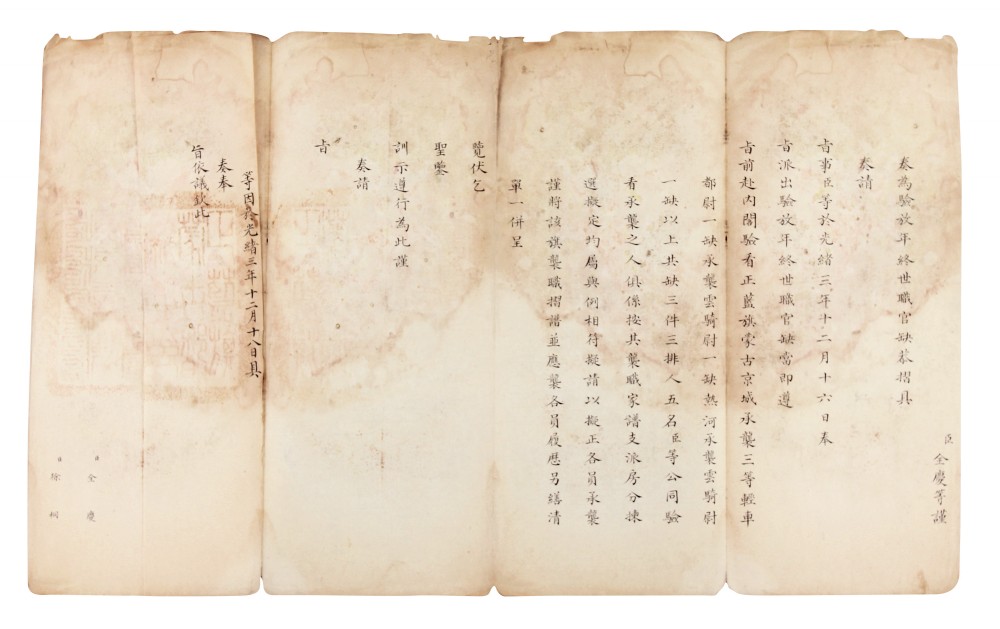 臣全慶等謹
奏為驗放年終世職官缺恭摺具
奏請
旨事臣等於光緒三年十二月十六日奉
旨派出驗放年終世職官缺當即遵
旨前赴內閣驗看正藍旗蒙古京城承襲三等輕車
都尉一缺承襲雲騎尉一缺熱河承襲雲騎尉
一缺以上共缺三件三排人五名臣等公同驗
看承襲之人俱係按其襲職家譜支派房分揀
選擬定均屬與例相符擬請以擬正各員承襲
謹將該旗襲職摺譜並應襲各員履歷另繕清
單一併呈
覽伏乞
聖鑒
訓示遵行為此謹
奏請
旨
等因於光緒三年十二月十八日具
奏奉
旨依議欽此
臣全慶
臣徐桐